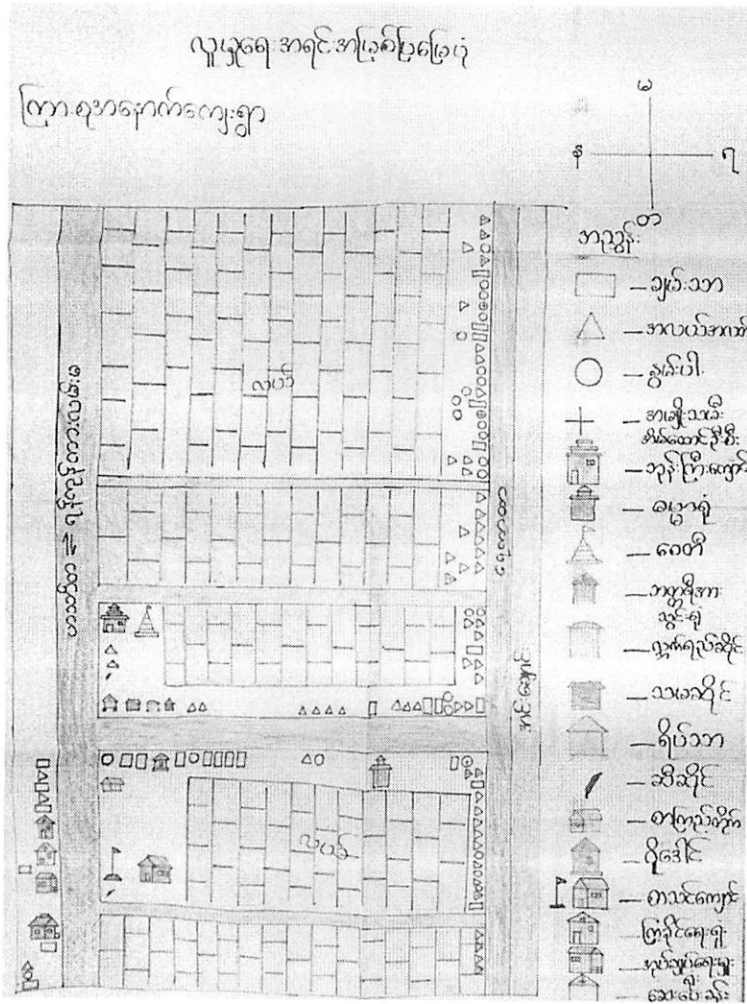 လူမှုရေးအရင်းအမြစ်ပြမြေပုံ
ကြာစုအနောက်ကျေးရွာ
မ
န
ရ
တ
အညွှန်း
ချမ်းသာ
အလယ်အလတ်
နွမ်းပါး
အမျိုးသမီး
အိမ်ထောင်ဦးစီး
ဘုန်းကြီးကျောင်း
ဓမ္မာရုံ
စေတီ
ဘတ္ထရီအား
သွင်းရုံ
လ္ဘက်ရည်ဆိုင်
သမဆိုင်
ရိပ်သာ
ဆီဆိုင်
စာကြည့်တိုက်
ဂိုဒေါင်
စာသင်ကျောင်း
ကြံ့ခိုင်ရေးရုံး
အုပ်ချုပ်ရေးမှူး
ရုံး
ဆေးပေးခန်း
လယ်
လယ်